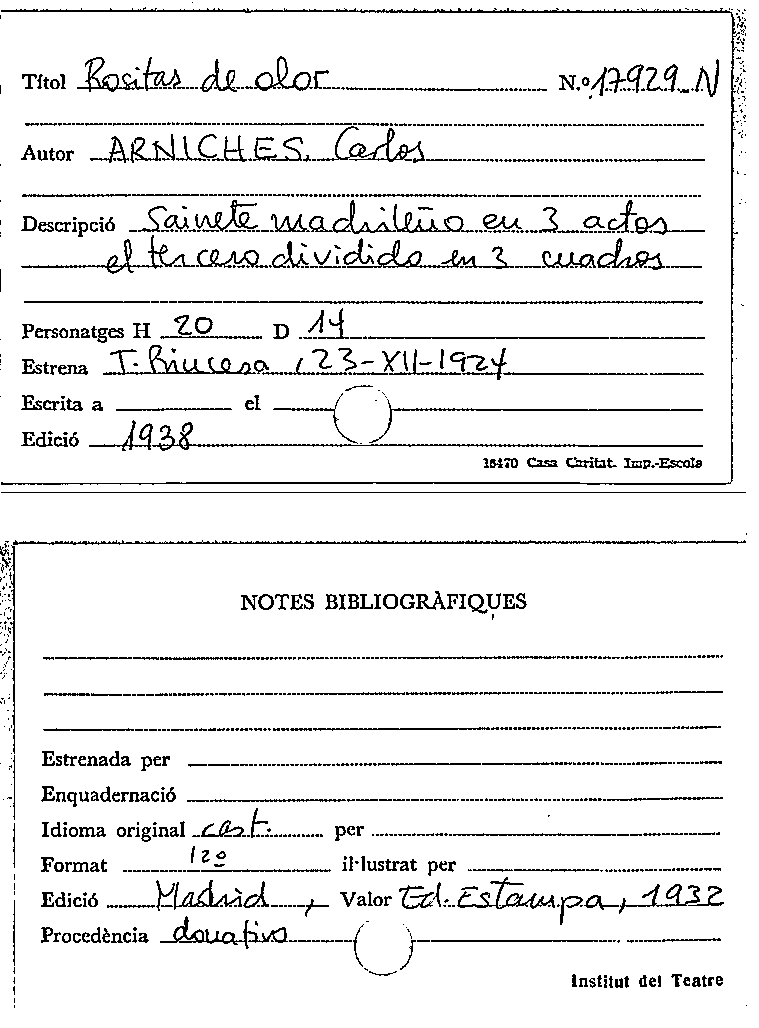 Títol Rositas de olor N.º 17929-N
Autor ARNICHES, Carlos
Descripció Sainete madrileño en 3 actos
el tercero dividido en 3 cuadros
Personatges H 20 D 14
Estrena T. Princesa, 23-XII-1924
Escrita a el
Edició 1938
16470 Casa Caritat. Imp.-Escola
NOTES BIBLIOGRÀFIQUES
Estrenada per
Enquadernació
Idioma original cast. per
Format 12º il·lustrat per
Edició Madrid, Valor Ed. Estampa, 1932
Procedència donativo
Institut del Teatre